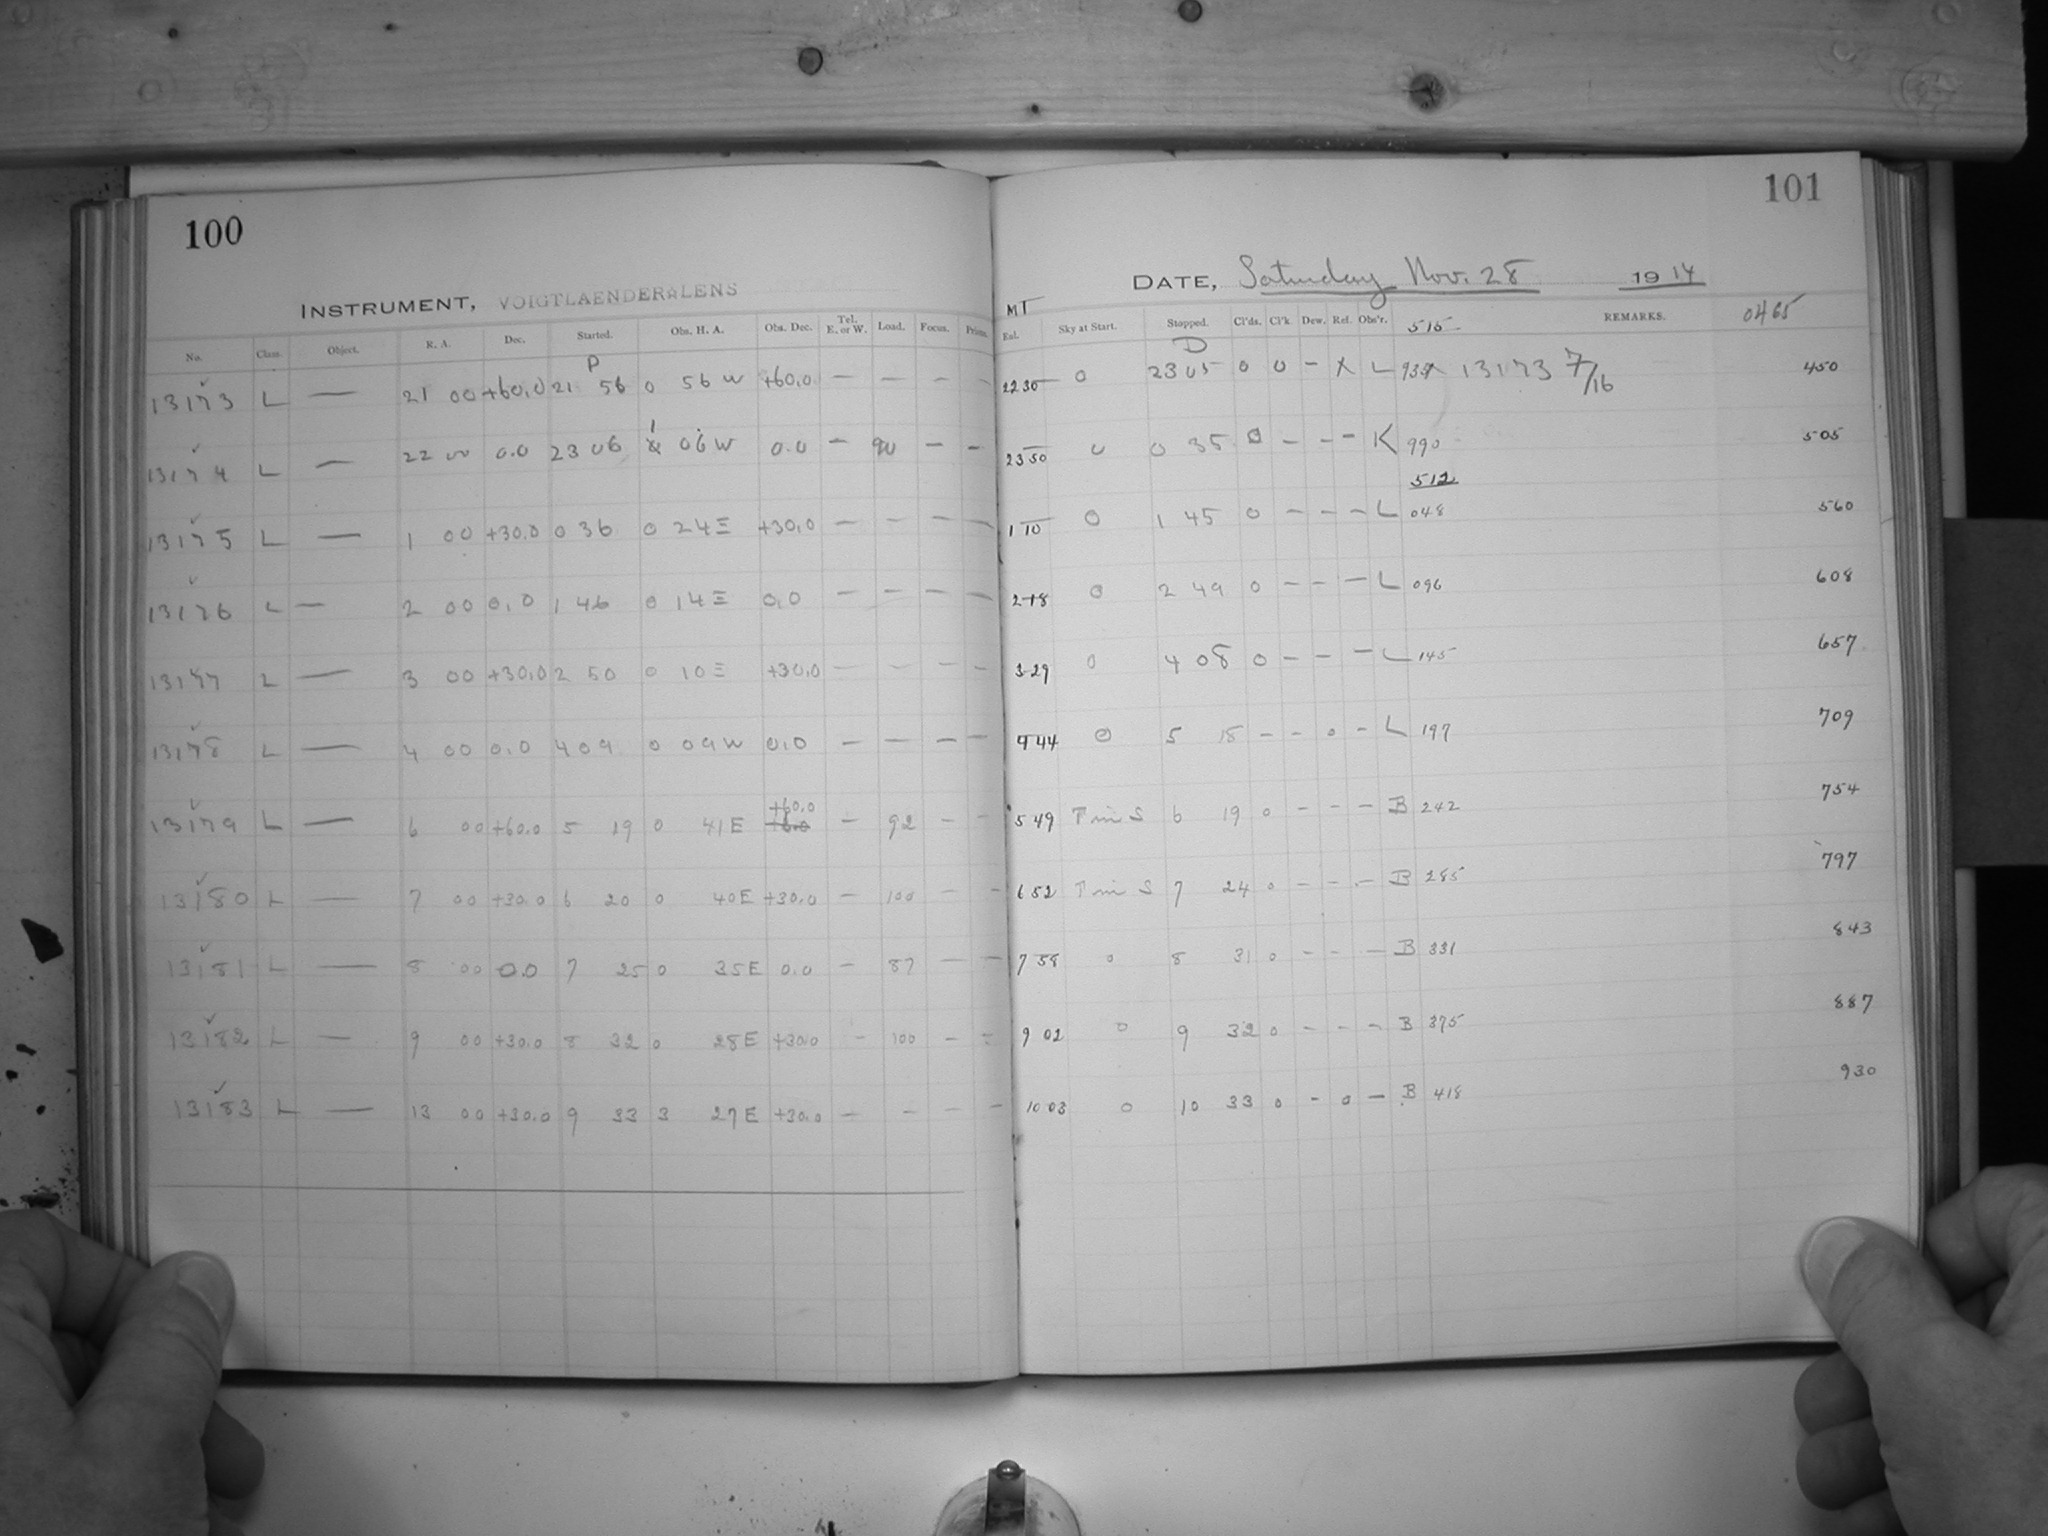 100
INSTRUMENT, VOIGTLAENDER LENS
No. Class. Object. R. A. Dec. Started. Obs. H. A. Obs. Dec. Tel. E. or W. Load. Focus. Prism.
P
13173 L — 21 00 +60.0 21 56 0 56 W +60.0 — — — —
13174 L — 22 00 0.0 23 06 1 06 W 0.0 — 90 — —
13175 L — 1 00 +30.0 0 36 0 24 E +30.0 — — — —
13176 L — 2 00 0.0 1 46 0 14 E 0.0 — — — —
13177 L — 3 00 +30.0 2 50 0 10 E +30.0 — — — —
13178 L — 4 00 0.0 4 09 0 09 W 0.0 — — — —
13179 L — 6 00 +60.0 5 19 0 41 E +60.0 — 92 — —
13180 L — 7 00 +30.0 6 20 0 40 E +30.0 — 100 — —
13181 L — 8 00 0.0 7 25 0 35 E 0.0 — 87 — —
13182 L — 9 00 +30.0 8 32 0 28 E +30.0 — 100 — —
13183 L — 13 00 +30.0 9 33 3 27 E +30.0 — — — —
101
DATE, Saturday Nov. 28 1914
MT
Sky at Start. Stopped. Cl'ds. Cl'k. Dew. Ref. Obs'r. 515 REMARKS. 0465
D
22 30 0 23 05 0 0 — X L 13173 7/16 450
23 50 0 0 35 0 — — — K 990 505
512
1 10 0 1 45 0 — — — L 048 560
2 18 0 2 49 0 — — — L 096 608
3 29 0 4 08 0 — — — L 145 657
4 44 0 5 18 — — 0 — L 197 709
5 49 F in S 6 19 0 — — — B 242 754
6 52 F in S 7 24 0 — — — B 285 797
7 58 0 8 31 0 — — — B 331 843
9 02 0 9 32 0 — — — B 375 887
10 03 0 10 33 0 — 0 — B 418 930